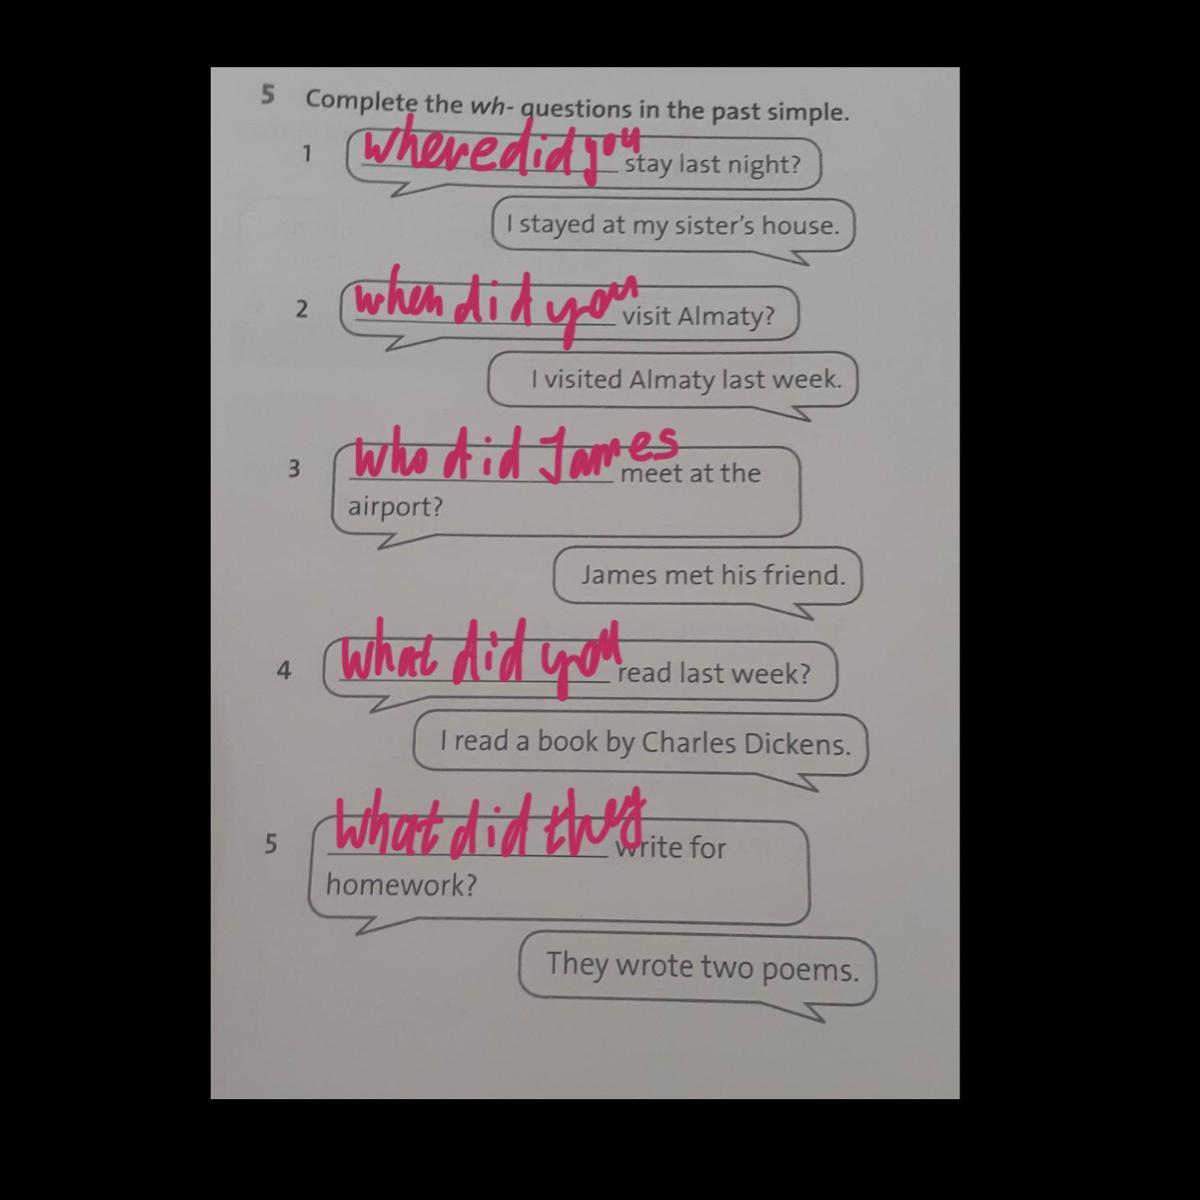 5 Complete the wh- questions in the past simple.
1 where did you stay last night?
I stayed at my sister's house.
2 when did you visit Almaty?
I visited Almaty last week.
3 who did James meet at the
airport?
James met his friend.
4 what did you read last week?
I read a book by Charles Dickens.
5 What did they write for
homework?
They wrote two poems.